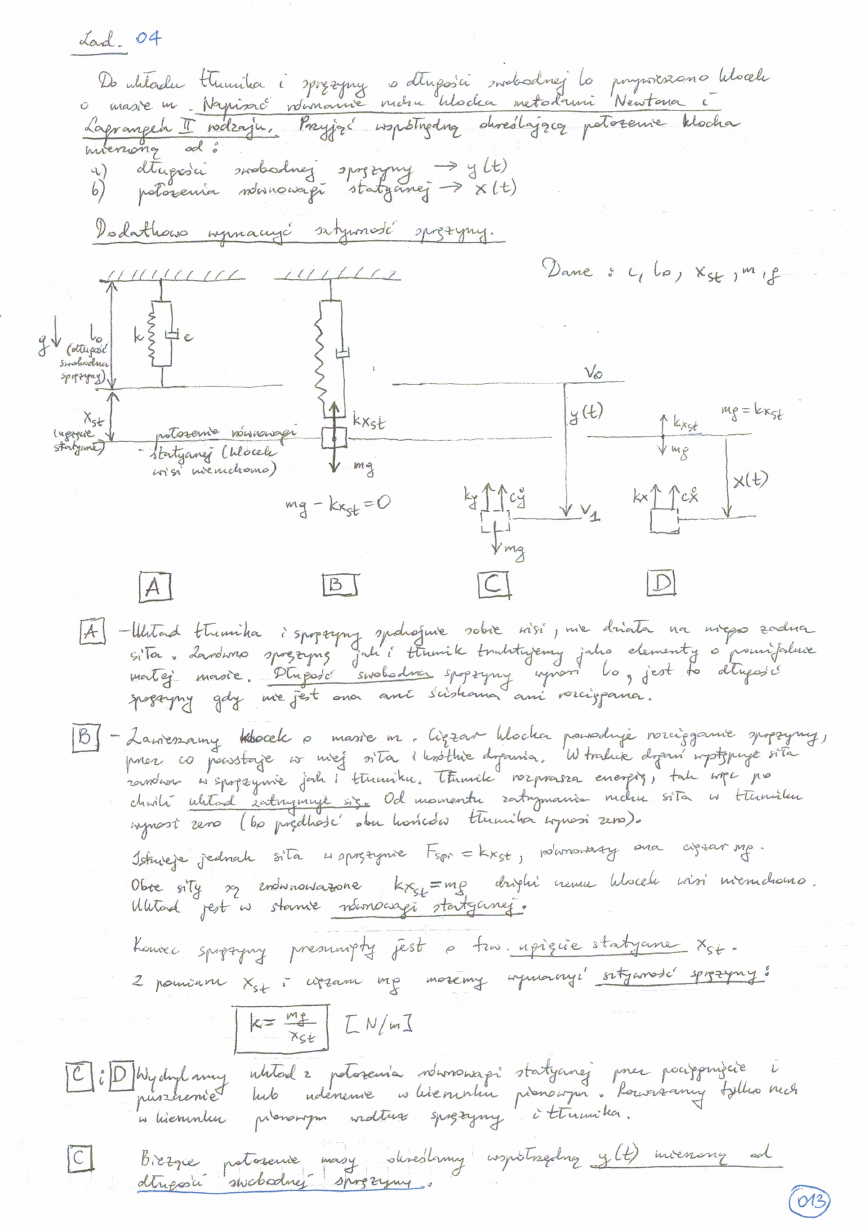 Zad. 04
Do układu tłumika i sprężyny o długości swobodnej lo przywieszono klocek
o masie m. Napisać równanie ruchu klocka metodami Newtona i
Lagrange'a II rodzaju. Przyjąć współrzędną określającą położenie klocka
mierzoną od:
a) długości swobodnej sprężyny → y(t)
b) położenia równowagi statycznej → x(t)
Dodatkowo wyznaczyć sztywność sprężyny.
Dane : c, lo, xst, m, g
g
lo
(długość
swobodna
sprężyny)
k
c
xst
(ugięcie
statyczne)
położenie równowagi
statycznej (klocek
wisi nieruchomo)
kxst
mg
mg - kxst = 0
V0
y(t)
ky
cẏ
V1
mg
kxst
mg
mg = kxst
x(t)
kx
cẋ
A
B
C
D
A - Układ tłumika i sprężyny spokojnie sobie wisi, nie działa na niego żadna
siła. Zarówno sprężynę jak i tłumik traktujemy jako elementy o pomijalnie
małej masie. Długość swobodna sprężyny wynosi lo, jest to długość
sprężyny gdy nie jest ona ani ściskana ani rozciągana.
B - Zawieszamy klocek o masie m. Ciężar klocka powoduje rozciąganie sprężyny,
przez co powstaje w niej siła i krótkie drgania. W trakcie drgań występuje siła
zarówno w sprężynie jak i tłumiku. Tłumik rozprasza energię, tak więc po
chwili układ zatrzymuje się. Od momentu zatrzymania ruchu siła w tłumiku
wynosi zero (bo prędkość obu końców tłumika wynosi zero).
Istnieje jednak siła w sprężynie Fspr = kxst, równoważy ona ciężar mg.
Obie siły są zrównoważone kxst = mg dzięki czemu klocek wisi nieruchomo.
Układ jest w stanie równowagi statycznej.
Koniec sprężyny przesunięty jest o tzw. ugięcie statyczne xst.
Z pomiaru xst i ciężaru mg możemy wyznaczyć sztywność sprężyny:
k = mg/xst [N/m]
C i D Wychylamy układ z położenia równowagi statycznej przez pociągnięcie i
puszczenie lub uderzenie w kierunku pionowym. Rozważamy tylko ruch
w kierunku pionowym wzdłuż sprężyny i tłumika.
C Bieżące położenie masy określamy współrzędną y(t) mierzoną od
długości swobodnej sprężyny.
013